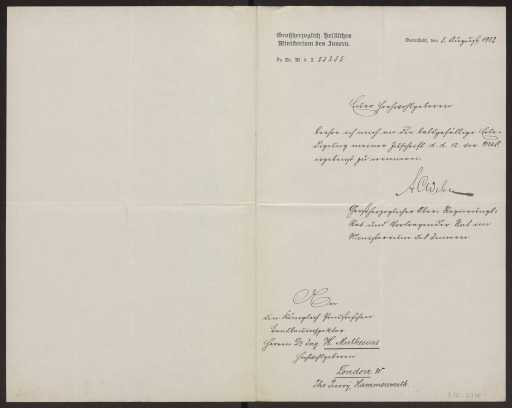 Großherzoglich Hessisches
Ministerium des Innern.
Zu Nr. M. d. I.
Darmstadt, den 2. August 1902
Euer Hochwohlgeboren
beehre ich mich an die baldgefällige Erle-
digung meiner Zuschrift d. d. 12. vor. Mts.
ergebenst zu erinnern.
Großherzoglicher Ober-Regierungs-
Rat und Vortragender Rat im
Ministerium des Innern
An
den Königlich Preußischen
Landbauinspektor
Herrn Dr. Ing. H. Muthesius
Hochwohlgeboren
London W
The Priory, Hammersmith